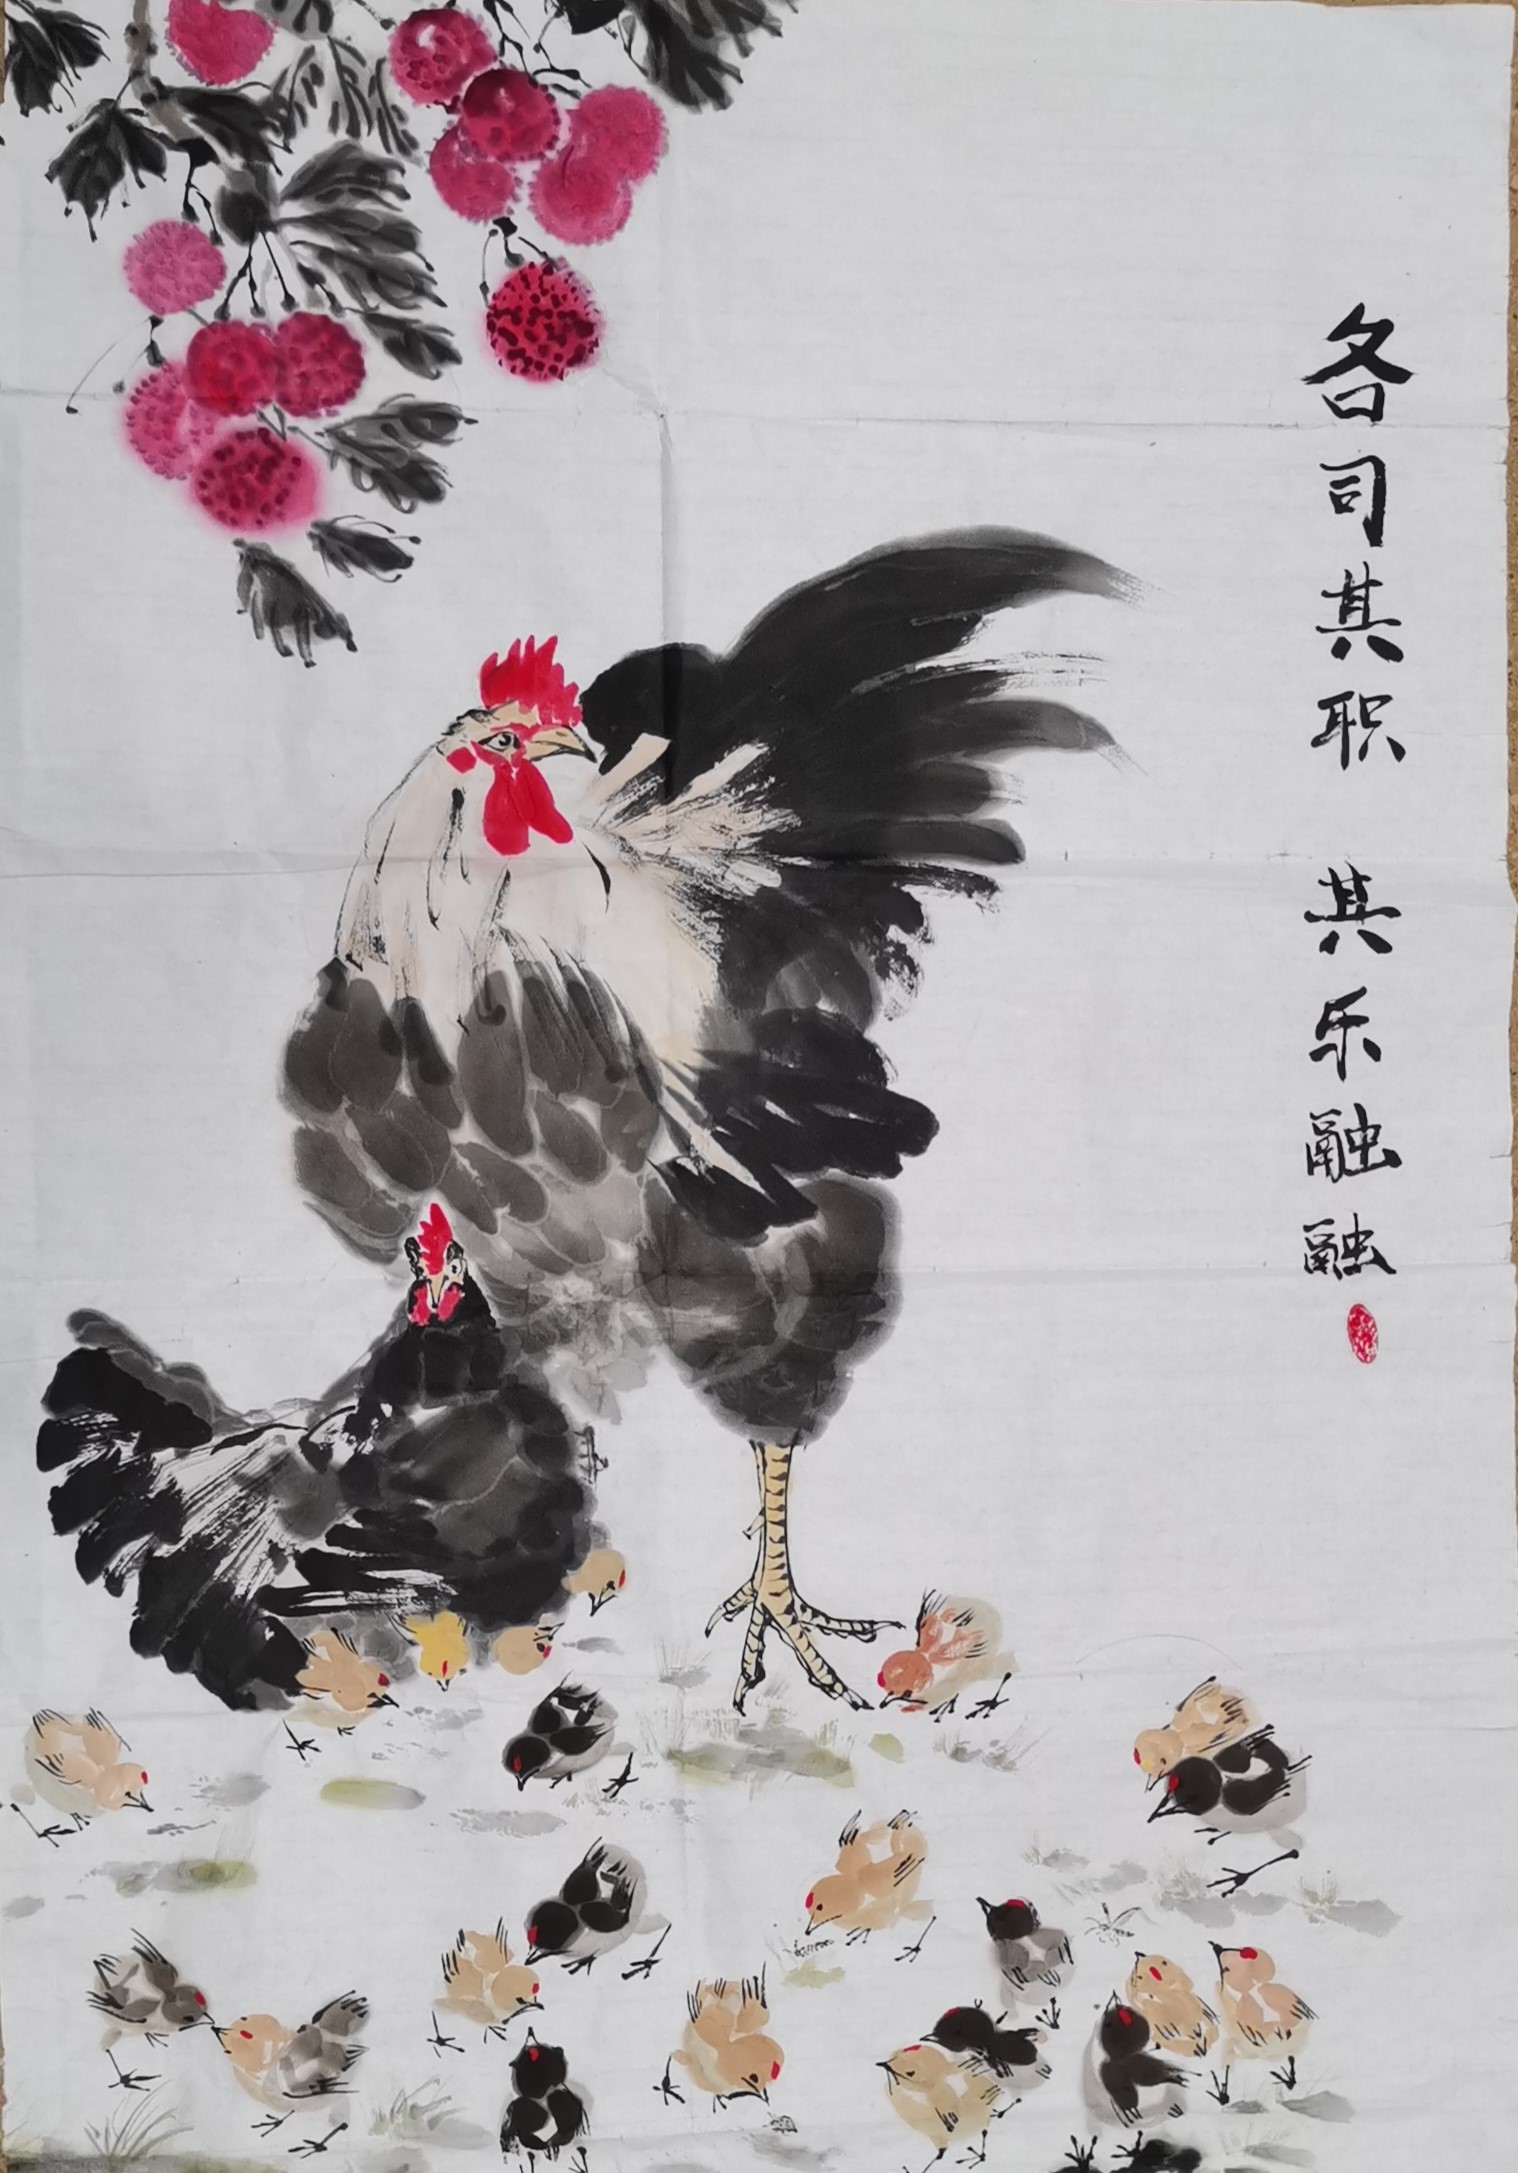 各司其职 其乐融融